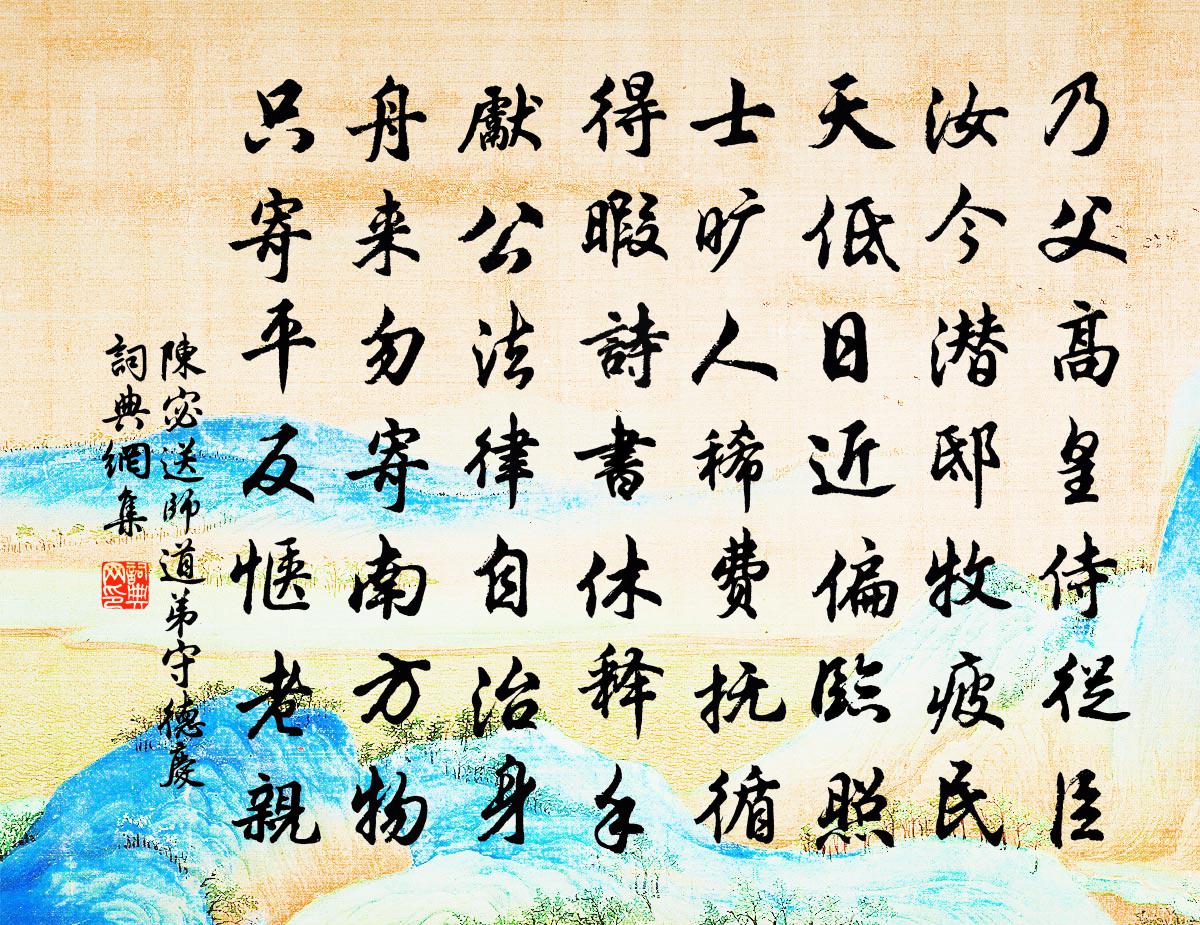 乃父高皇侍從臣
汝今潛邸牧疲民
天低日近偏臨照
士旷人稀費抚循
得暇詩書休释手
獻公法律自治身
舟来勿寄南方物
只寄平反愜老親
陳宓送師道弟守德慶
詞典網集
詞典网印